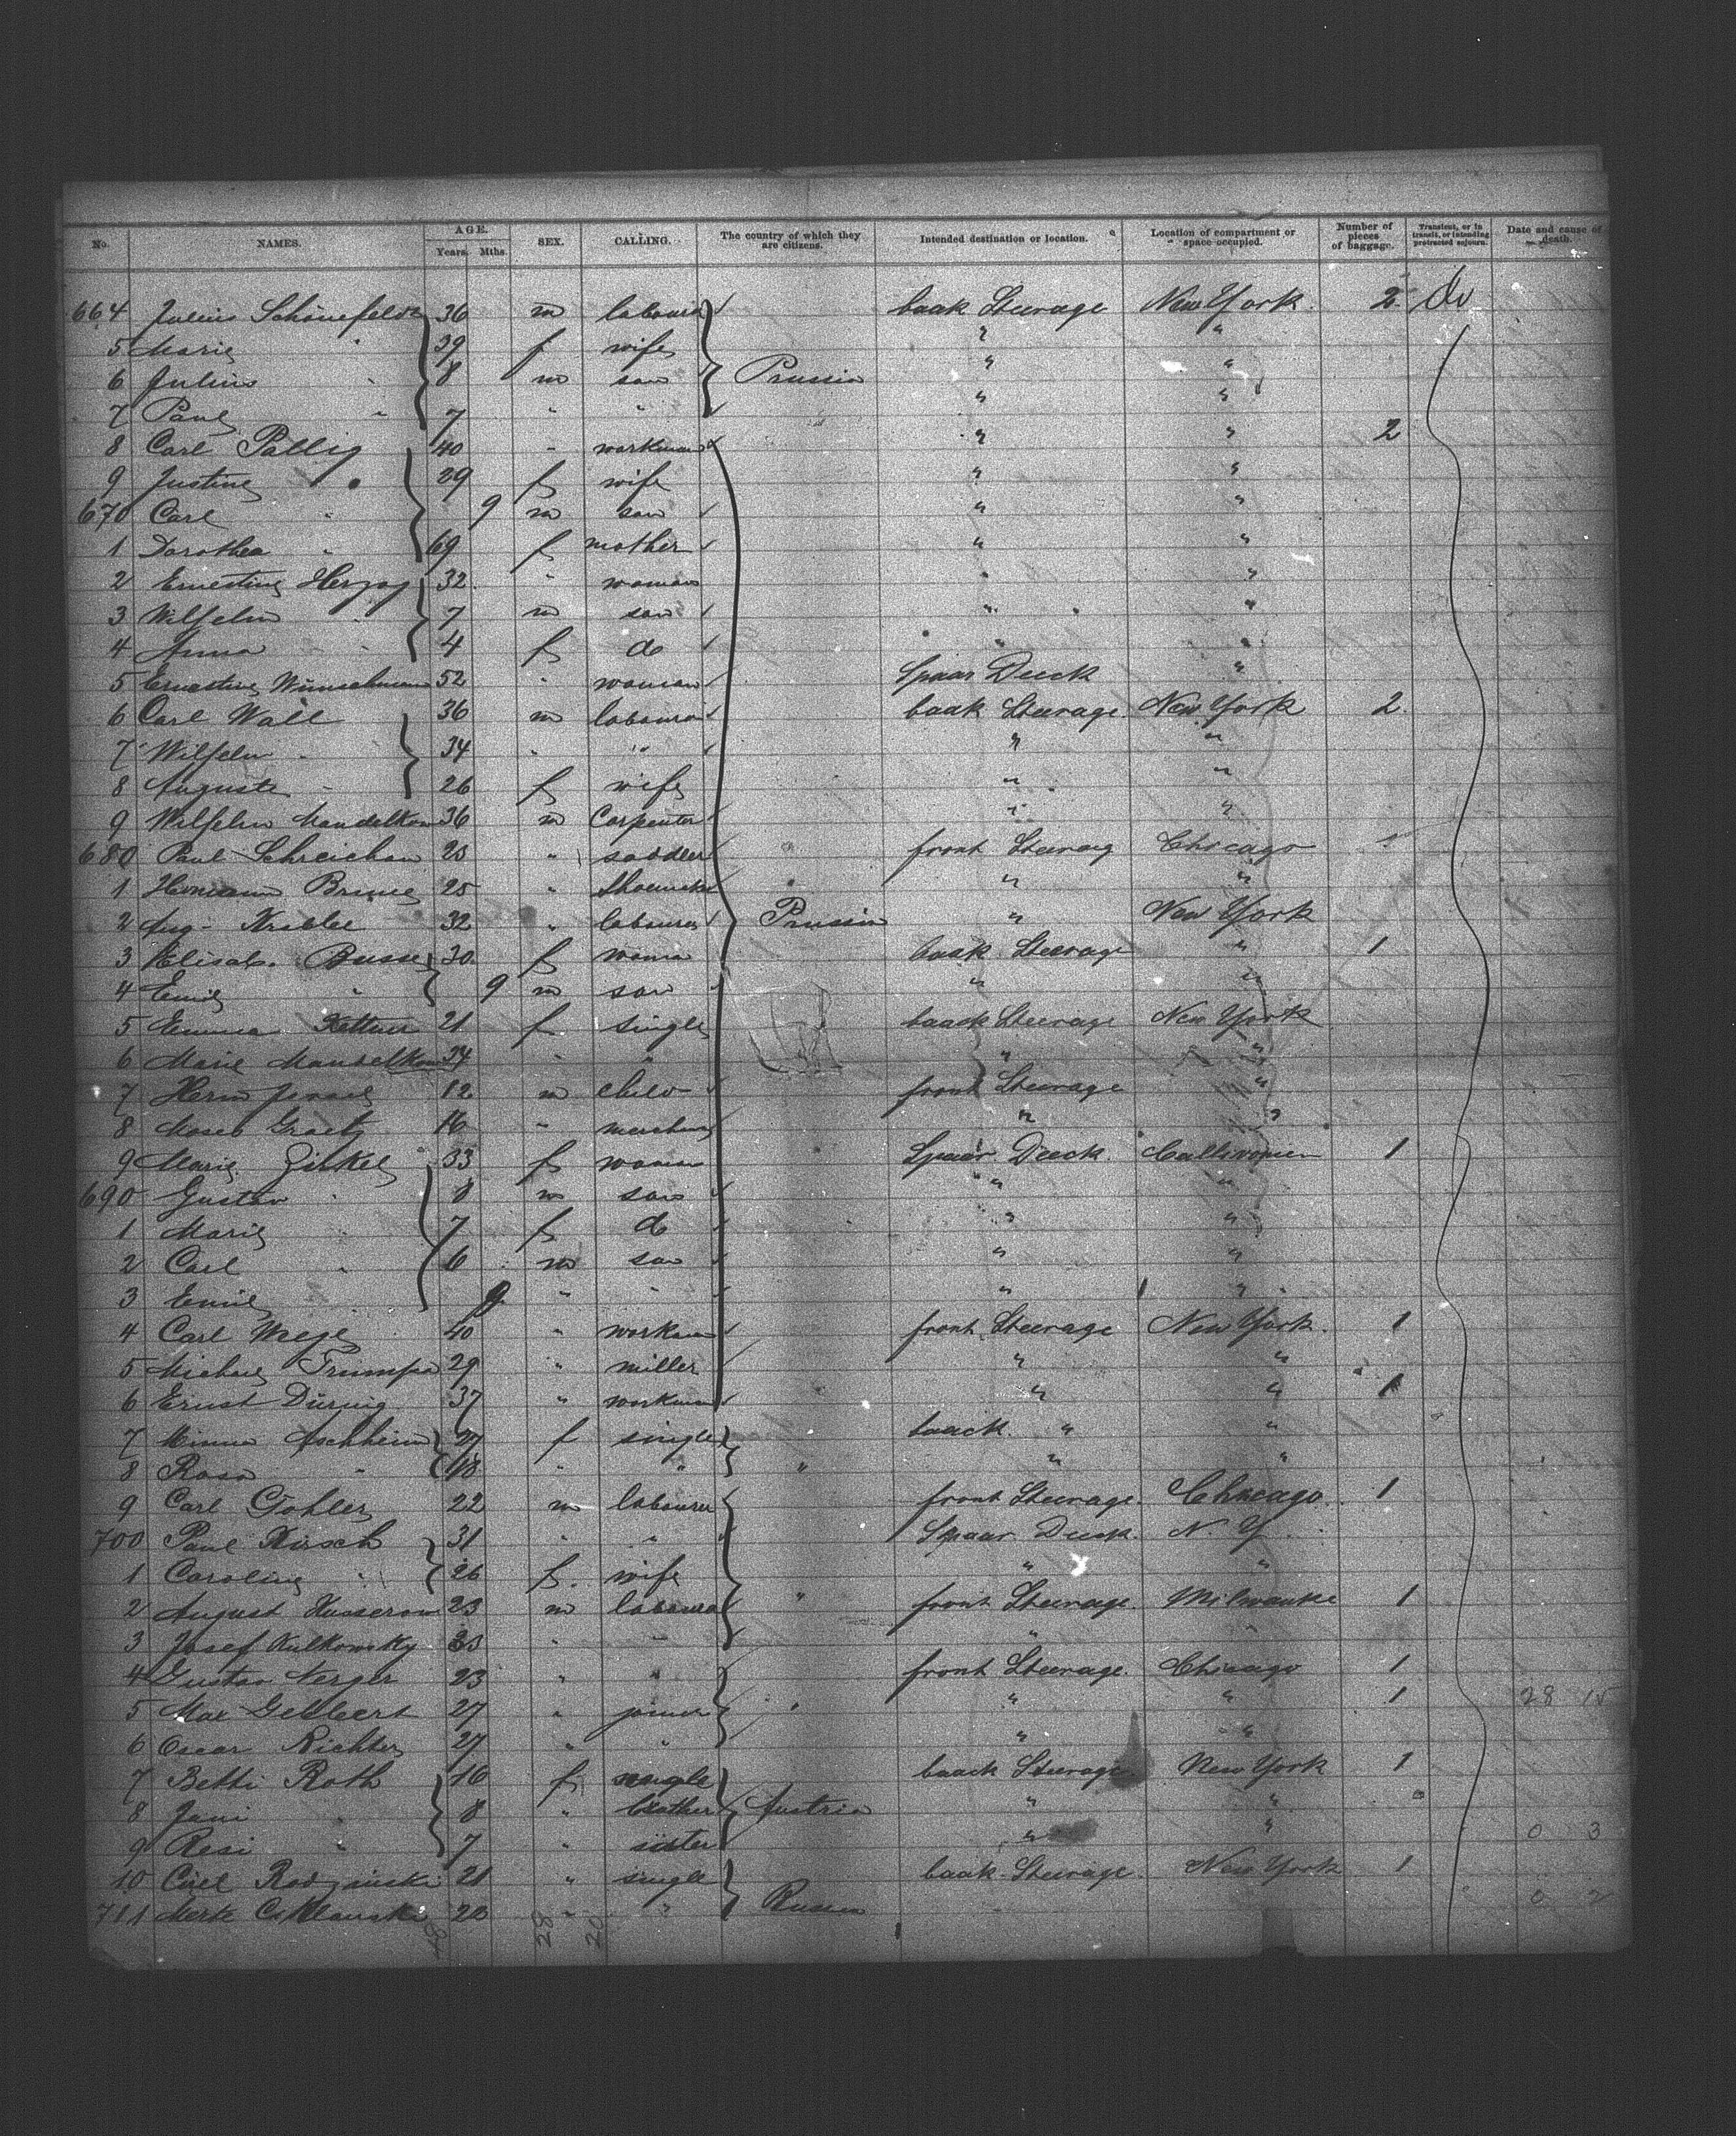 No. NAMES. AGE. Years. Mths. SEX. CALLING. The country of which they are citizens. Intended destination or location. Location of compartment or space occupied. Number of pieces of baggage. Transient, or in transit, or intending protracted sojourn. Date and cause of death.
664 Julius Schönefeldt 36 m labourer baak Steerage New York. 2 do
5 Marie " 39 f wife " "
6 Julius " 8 m son Prussia " "
7 Paul " 7 " " " "
8 Carl Pallig 40 " workman " " 2
9 Justine " 29 f wife " "
670 Carl " 9 m son " "
1 Dorothea " 69 f mother " "
2 Ernestine Herzog 32 " woman " "
3 Wilhelm " 7 m son " "
4 Anna " 4 f do " "
5 Ernestine Wünschmann 52 " woman Spaar Deeck "
6 Carl Wall 36 m labourer baak Steerage. New York 2.
7 Wilhelm " 34 " " " "
8 Auguste " 26 f wife " "
9 Wilhelm Mandelkow 36 m Carpenter " "
680 Paul 23 " saddler front Steerag Chicago
1 Hermann 25 " Shoemaker " "
2 Aug. 32 " labourer Prussia " New York
3 Elisab. Busse 30 f woman baak Steerage " 1
4 Emil " 9 m son " "
5 Emma Kettner 21 f single baack Steerage New York
6 Marie Mandelkow 34 " " " "
7 Herm 12 m child front Steerage "
8 Moses Graetz 16 " merchant " "
9 Marie Zirkel 33 f woman Spaar Deeck. 1
690 Gustav " 8 m son " "
1 Marie " 7 f do " "
2 Carl " 6 m son " "
3 Emil " 9 " " " "
4 Carl Wege 40 " workman front Steerage New York. 1
5 29 " miller " "
6 Ernst Düring 37 " workman " " 1
7 Minna Aschheim 27 f single baack. " "
8 Rosa " 18 " " " " "
9 Carl Göhler 22 m labourer front Steerage. Chicago. 1
700 Paul Kirsch 31 " " Spaar Deeck. N. Y.
1 Caroline " 26 f. wife " "
2 August 23 m labourer " front Steerage. Milwauke 1
3 Josef Kulkowsky 33 " " " "
4 Gustav Nerger 23 " " front Steerage. Chicago 1
5 Max 27 " joiner " " " 1 28 15
6 Oscar Richter 27 " " " "
7 Betti Roth 16 f single baack Steerage New York 1
8 Jani " 8 " brother Austria " "
9 Resi " 7 " sister " " 0 3
10 21 " single baak Steerage. New York 1
711 20 " " Russia 0 2
28 20